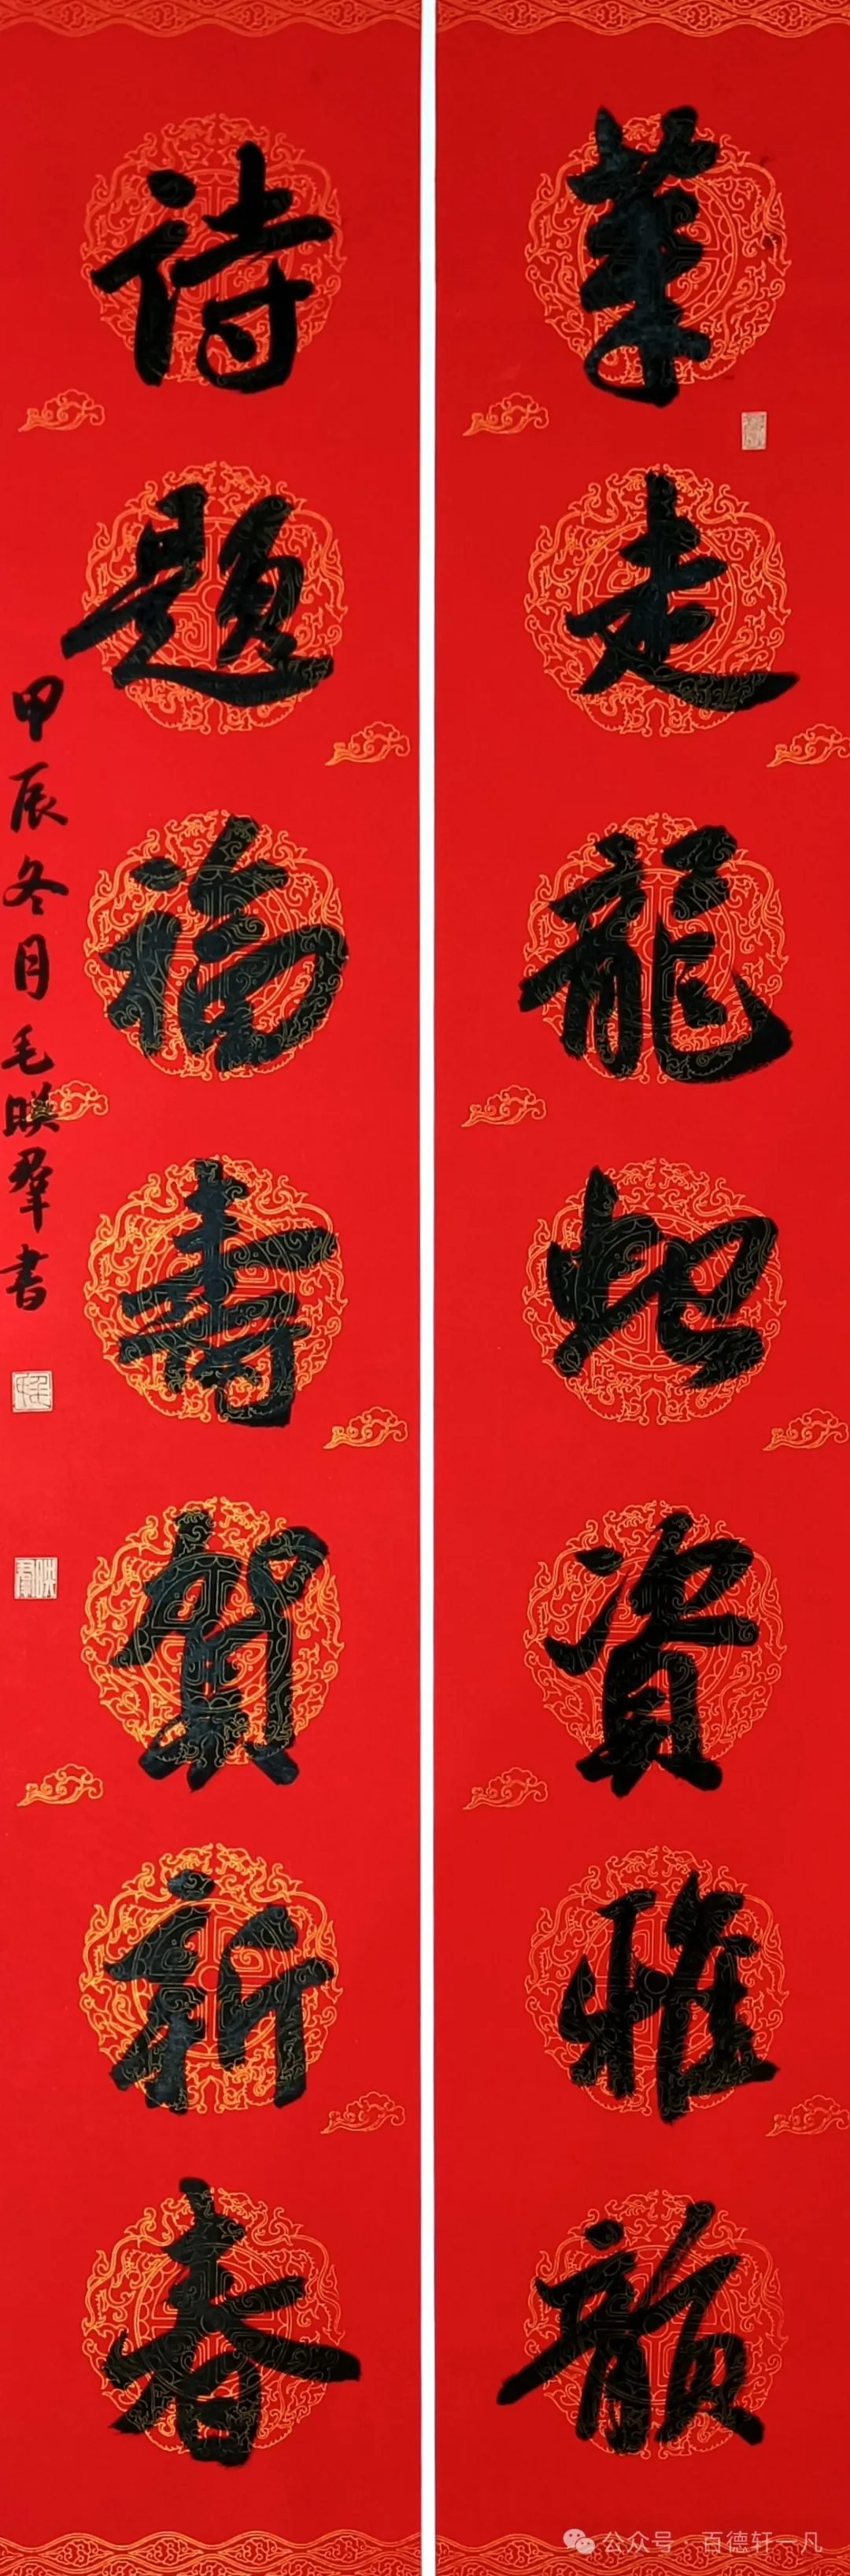 筆走龍蛇資雅韻
詩題福壽賀新春
甲辰冬月毛映羣書
公众号 · 百德轩一凡